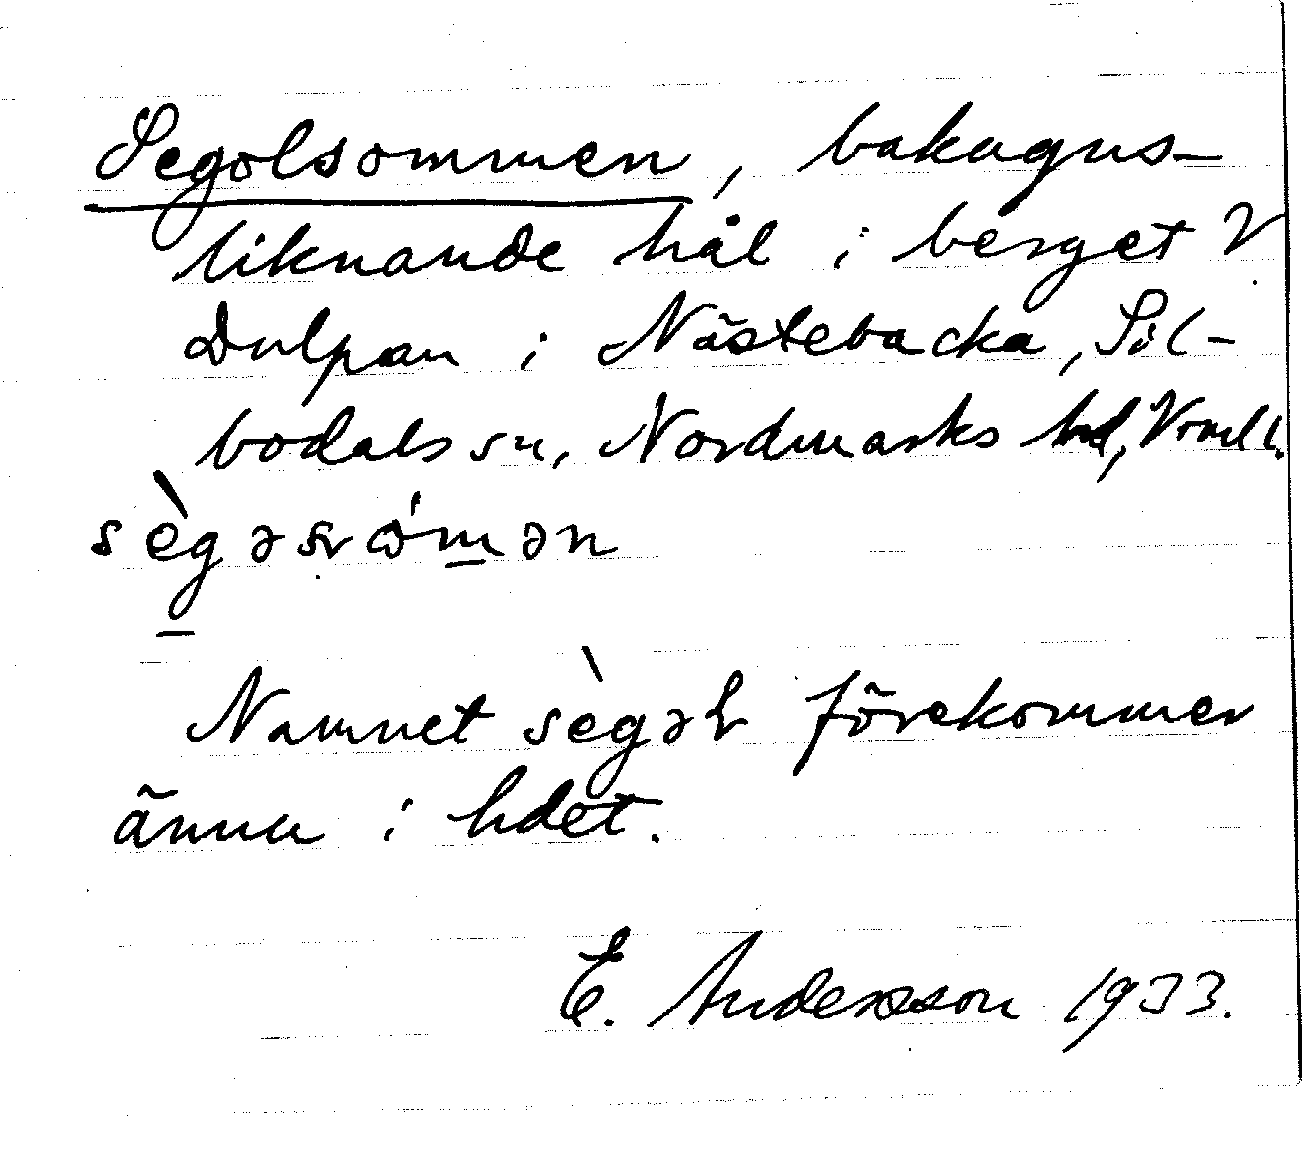 Segolsommen, bakugns-
liknande hål i berget V
Dulpan i Nästebacka, Sil-
bodals sn, Nordmarks hd, Vrml.
sègəsωmən
Namnet sègəl förekommer
ännu i hdet.
E. Andersson 1933.